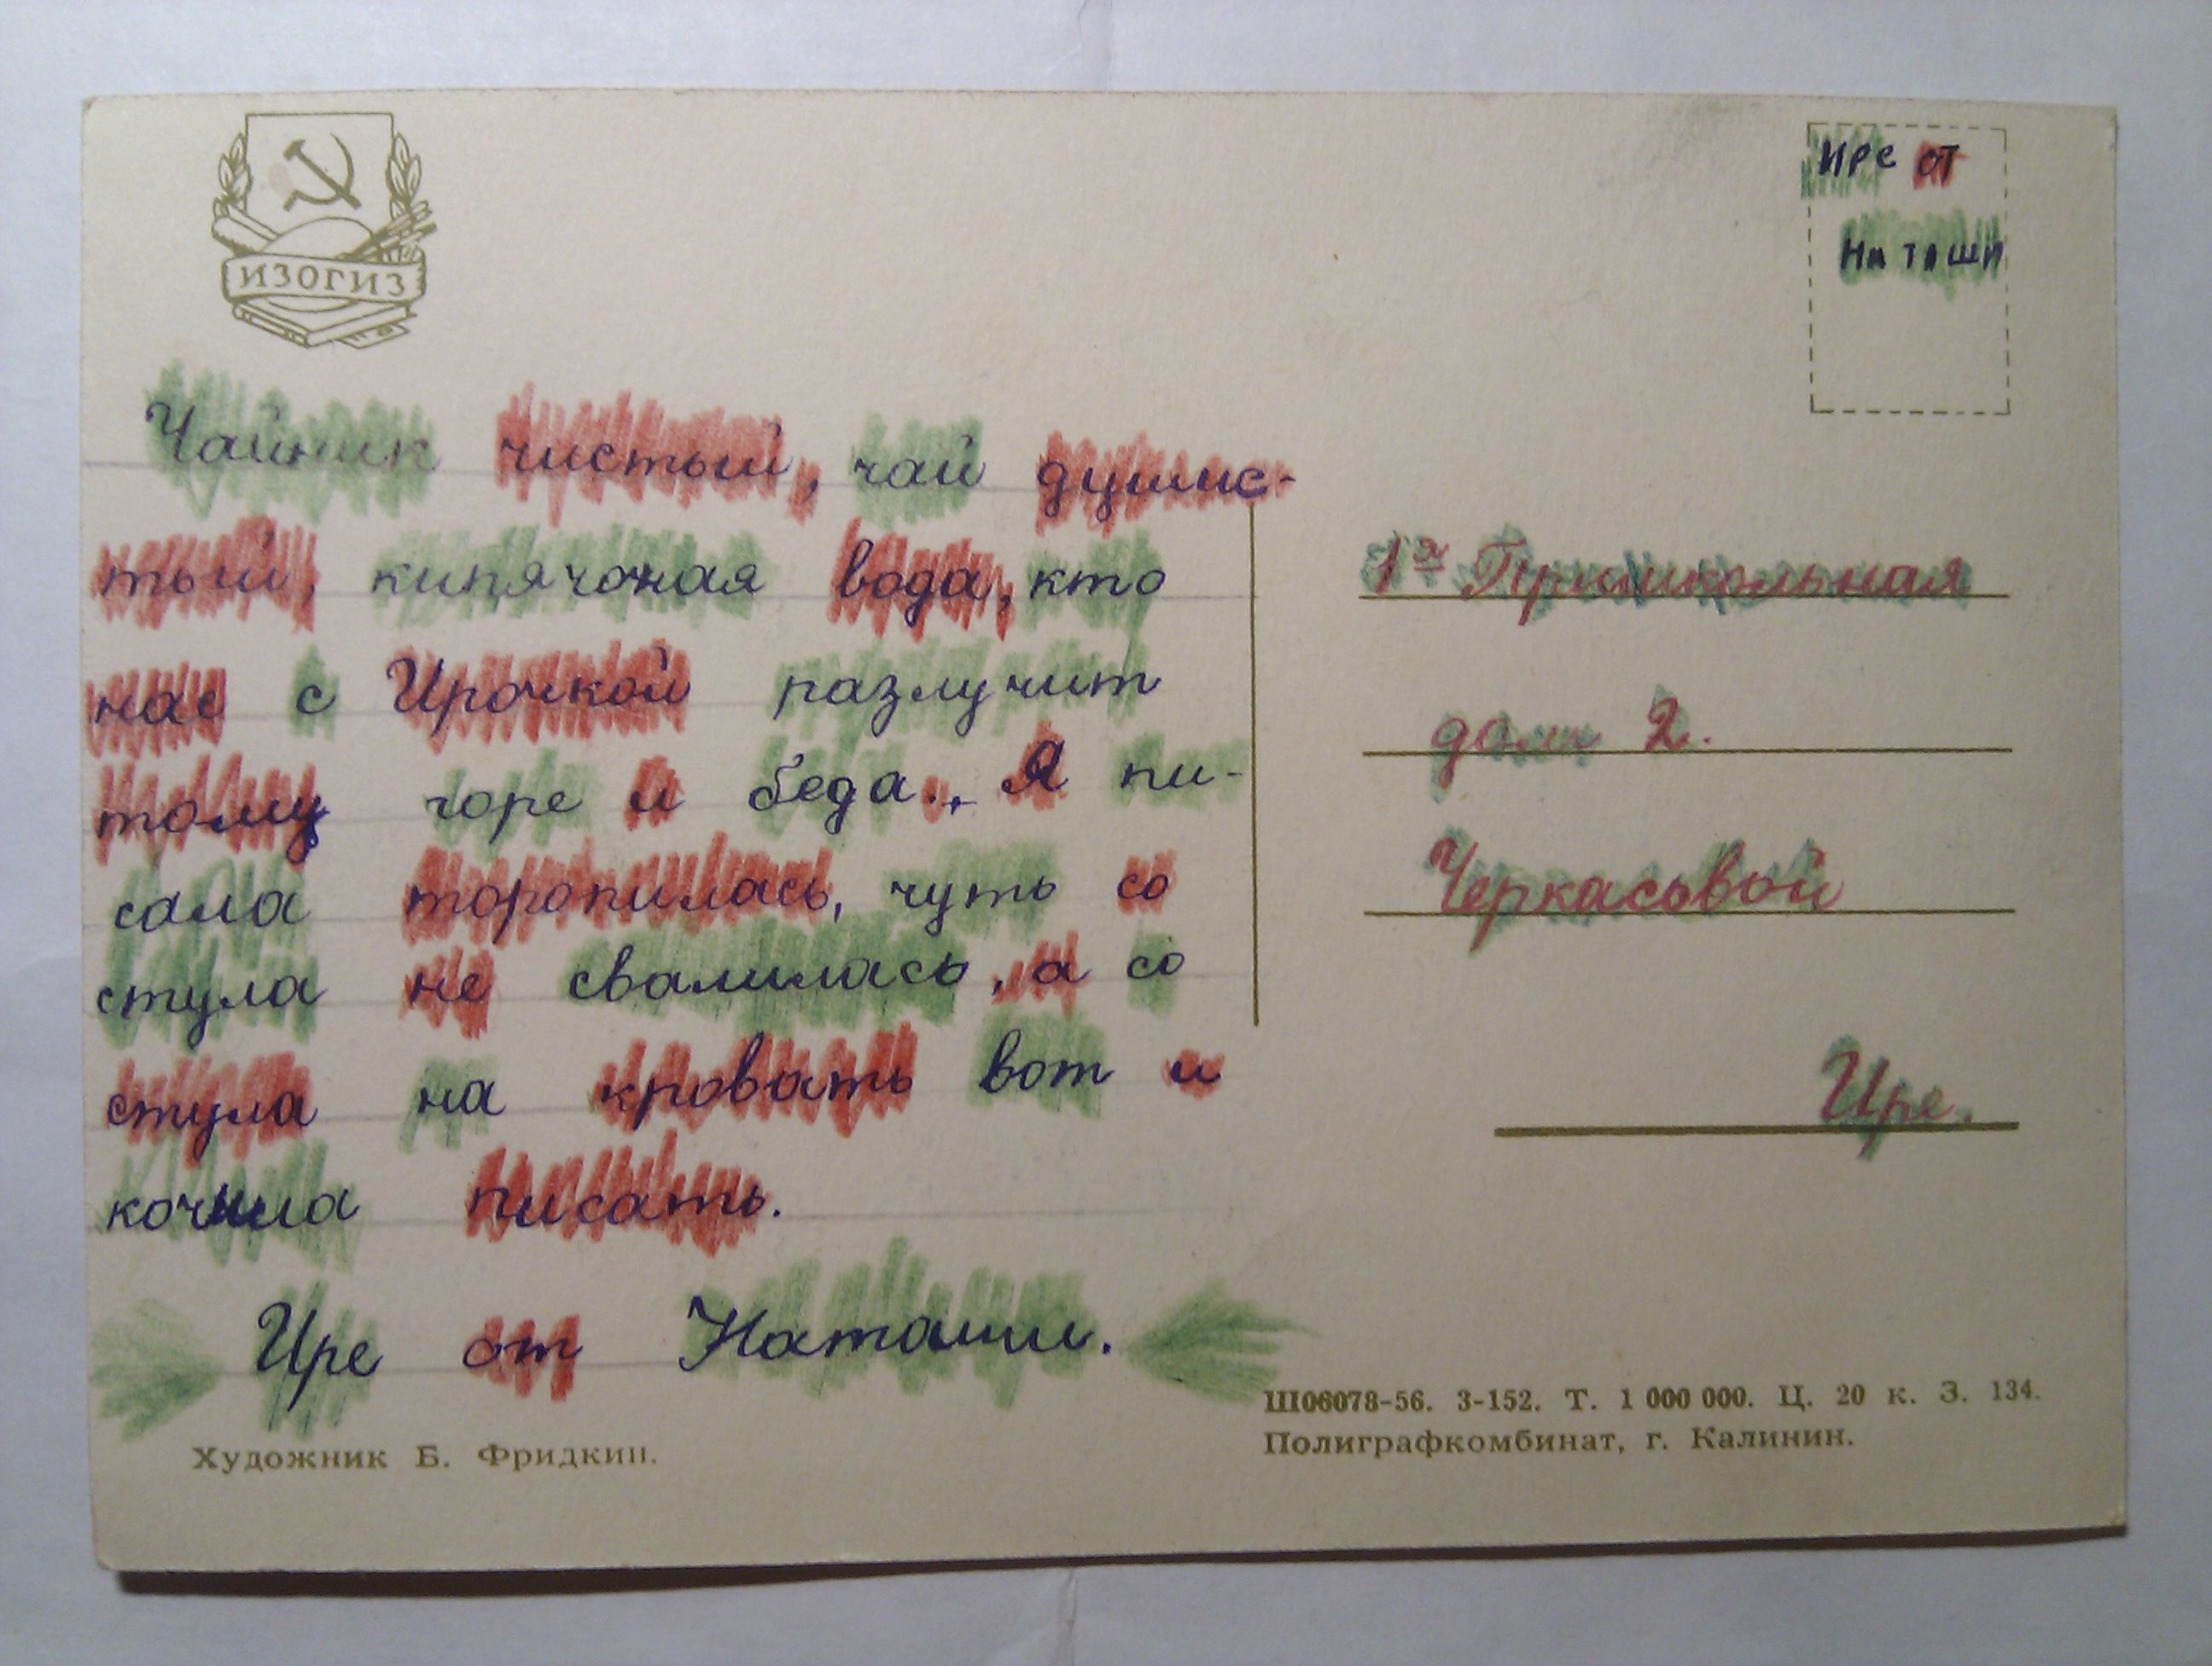 ИЗОГИЗ
Ире от
Наташи
Чайник чистый, чай душис-
тый, кипячоная вода, кто
нас с Ирочкой разлучит
тому горе и беда., Я пи-
сала торопилась, чуть со
стула не свалилась, а со
стула на кровать вот и
кочила писать.
Ире от Наташи.
1я Пришкольная
дом 2.
Черкасовой
Ире.
Художник Б. Фридкин.
Ш06078-56. 3-152. Т. 1 000 000. Ц. 20 к. З. 134.
Полиграфкомбинат, г. Калинин.